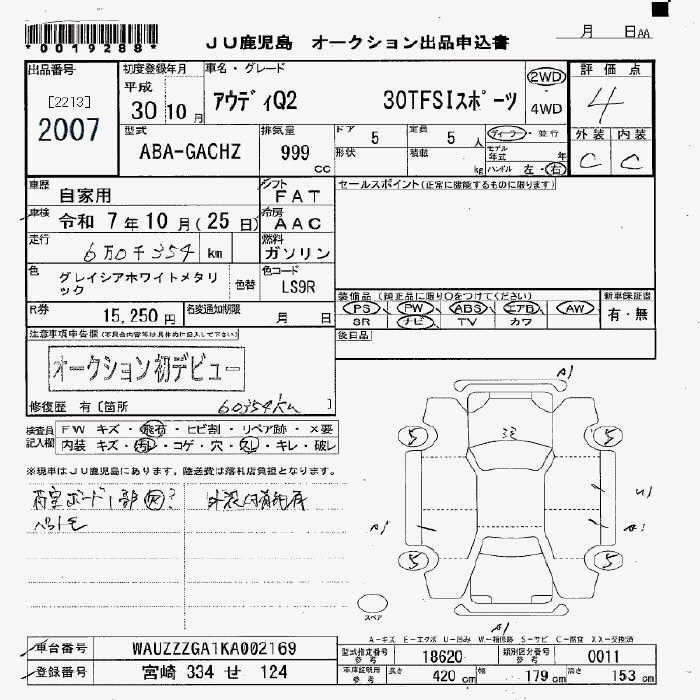 *0019288*
JU鹿児島 オークション出品申込書
月 日 AA
出品番号
[2213]
2007
初度登録年月
平成
30 10 月
車名・グレード
アウディQ2 30TFSIスポーツ
2WD
・
4WD
評価点
4
外装 内装
C C
型式
ABA-GACHZ
排気量
999 cc
ドア 5
定員 5 人
形状
積載 kg
ディーラー・並行
モデル年式 年
ハンドル 左・右
車歴
自家用
シフト
FAT
車検
令和 7年10月(25日)
冷房
AAC
走行
6万0千354 km
燃料
ガソリン
色
グレイシアホワイトメタリック
色替
色コード
LS9R
R券
15,250円
名変通知期限
月 日
セールスポイント(正常に機能するものに限ります)
装備品(純正品に限り○をつけてください)
PS PW ABS エアB AW
SR ナビ TV カワ
新車保証書
有・無
後日品
注意事項申告欄(不具合内容等は具体的に記入して下さい)
オークション初デビュー
修復歴 有〔箇所 60354km 〕
検査員記入欄
FW キズ・飛石・ヒビ割・リペア跡・X要
内装 キズ・汚れ・コゲ・穴・スレ・キレ・破レ
※現車はJU鹿児島にあります。陸送費は落札店負担となります。
荷室ボード1部
A1
5 5
A1
5 5
スペア
A1
A-キズ E-エクボ U-凹み W-補修跡 S-サビ C-腐食 XX-交換済
車台番号 WAUZZZGA1KA002169
登録番号 宮崎 334 せ 124
型式指定番号 参考 18620
類別区分番号 参考 0011
車庫証明用 参考 長さ 420 cm 幅 179 cm 高さ 153 cm